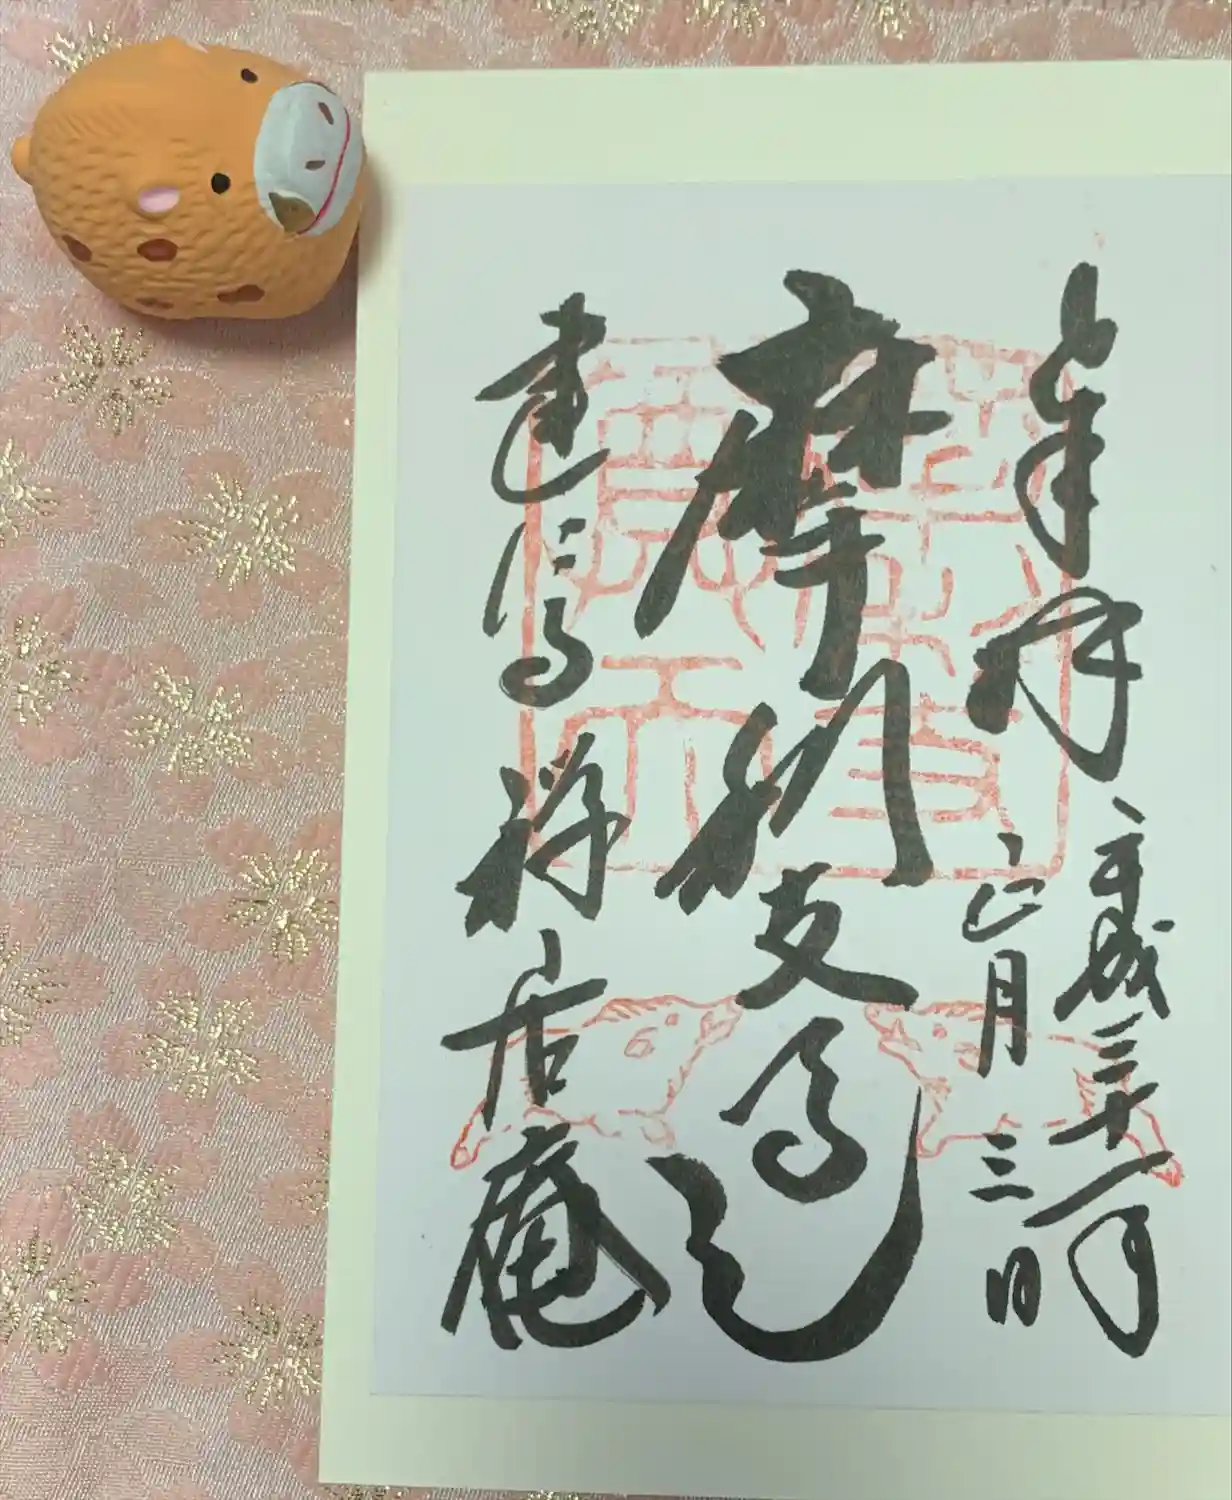 奉拝
平成三十一年
正月三日
摩利支
建仁寺禅居庵